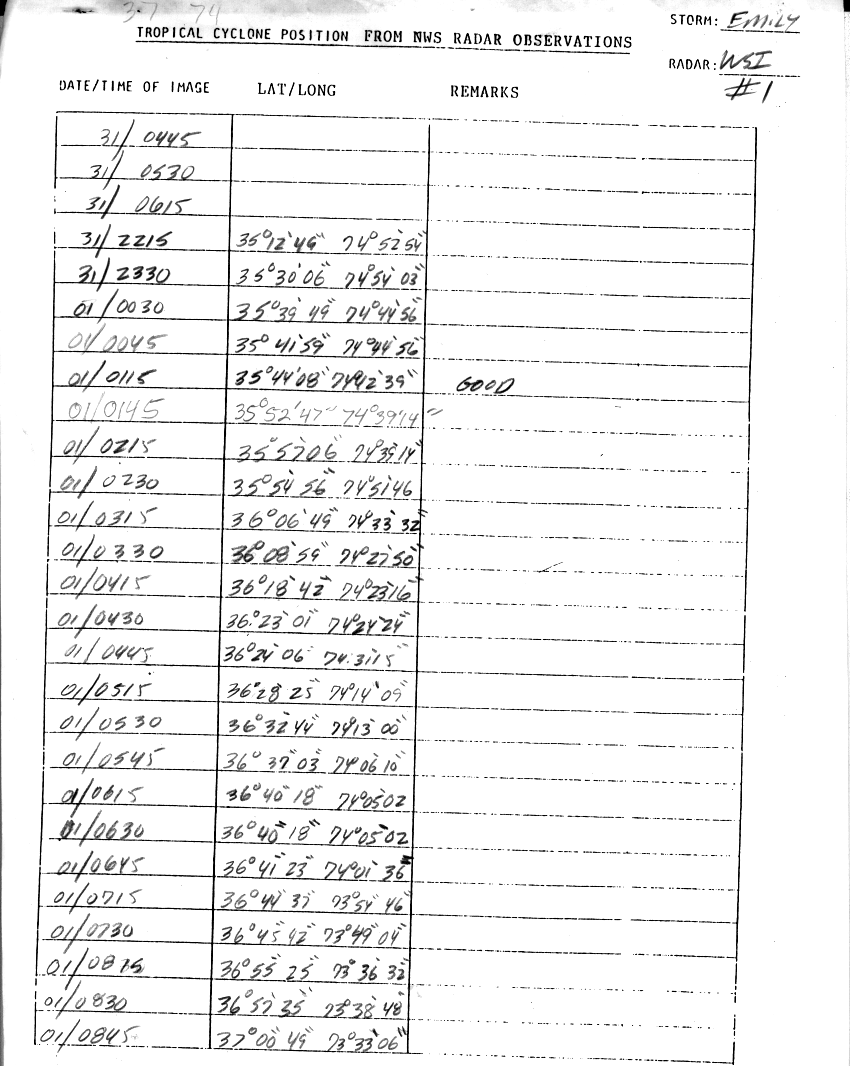 3-7 74
TROPICAL CYCLONE POSITION FROM NWS RADAR OBSERVATIONS
STORM: EMILY
RADAR: WSI
#1
DATE/TIME OF IMAGE LAT/LONG REMARKS
31/ 0445
31/ 0530
31/ 0615
31/2215 35°12'49" 74°52'54"
31/2330 35°30'06 74°54'03"
01/0030 35°39'49" 74°44'56"
01/0045 35°41'59" 74°44'56"
01/0115 35°44'08" 74°42'39" GOOD
01/0145 35°52'47" 74°39'14"
01/0215 35°57'06" 74°39'14"
01/0230 35°54'56" 74°51'46
01/0315 36°06'49" 74°33'32"
01/0330 36°08'59" 74°27'50"
01/0415 36°18'42" 74°23'16"
01/0430 36°23'01" 74°24'24"
01/0445 36°24'06" 74°31'15"
01/0515 36°28'25" 74°14'09"
01/0530 36°32'44" 74°13'00"
01/0545 36°37'03" 74°06'10"
01/0615 36°40'18" 74°05'02
01/0630 36°40'18" 74°05'02
01/0645 36°41'23" 74°01'36"
01/0715 36°44'37" 73°54'46"
01/0730 36°45'42" 73°49'04"
01/0815 36°55'25" 73°36'32"
01/0830 36°57'35" 73°38'48"
01/0845 37°00'49" 73°33'06"